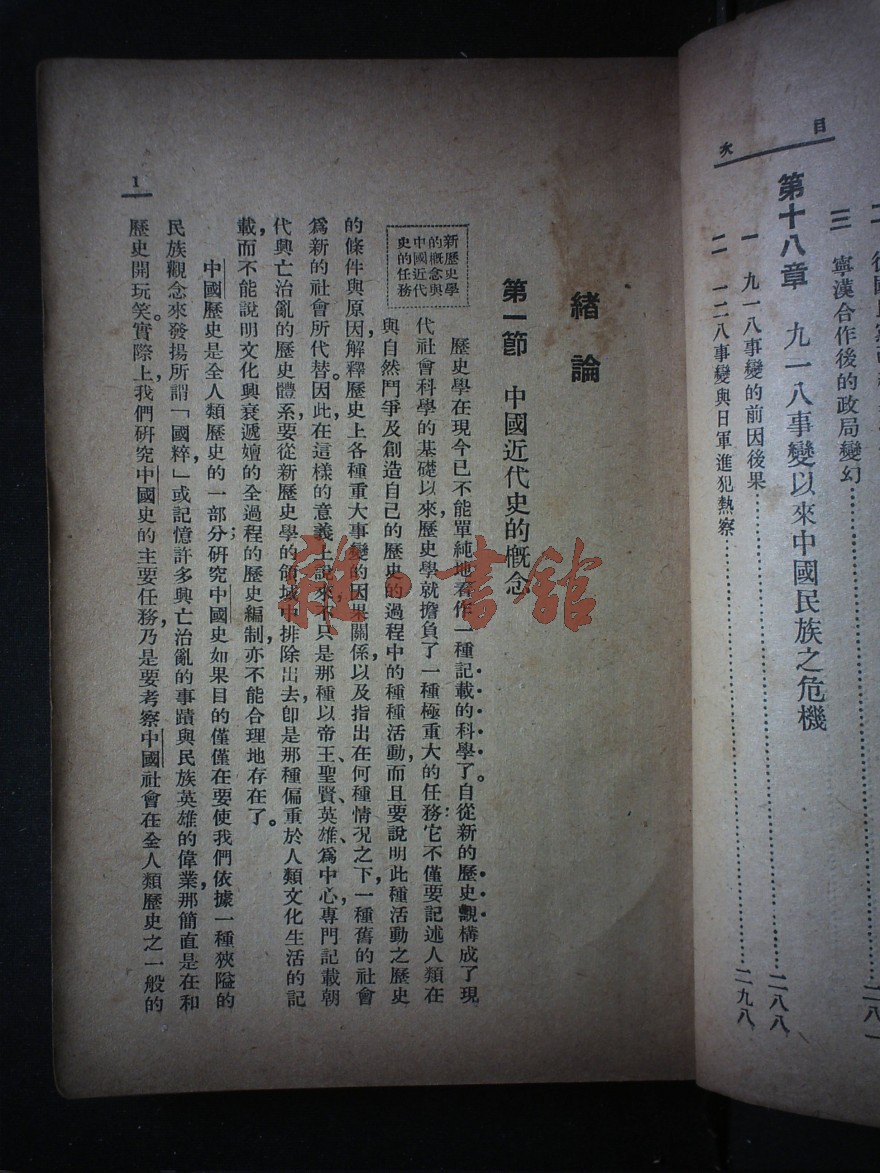 目次
三　寧漢合作後的政局變幻
二八一
第十八章　九一八事變以來中國民族之危機
一　九一八事變的前因後果……二八八
二　一二八事變與日軍進犯熱察……二九八
緒論
第一節　中國近代史的概念
新歷史學
的概念與
中國近代
史的任務
歷史學在現今已不能單純地看作一種記載的科學了。自從新的歷史觀構成了現
代社會科學的基礎以來，歷史學就擔負了一種極重大的任務：它不僅要記述人類在
與自然鬥爭及創造自己的歷史的過程中的種種活動，而且要說明此種活動之歷史
的條件與原因，解釋歷史上各種重大事變的因果關係，以及指出在何種情況之下，一種舊的社會
爲新的社會所代替。因此，在這樣的意義上說來，不只是那種以帝王、聖賢、英雄爲中心，專門記載朝
代興亡治亂的歷史體系，要從新歷史學的領域中排除出去，卽是那種偏重於人類文化生活的記
載，而不能說明文化興衰遞嬗的全過程的歷史編制，亦不能合理地存在了。
中國歷史是全人類歷史的一部分；研究中國史如果目的僅僅在要使我們依據一種狹隘的
民族觀念來發揚所謂「國粹」，或記憶許多興亡治亂的事蹟與民族英雄的偉業，那簡直是在和
歷史開玩笑。實際上，我們研究中國史的主要任務，乃是要考察中國社會在全人類歷史之一般的
1
雜·書館